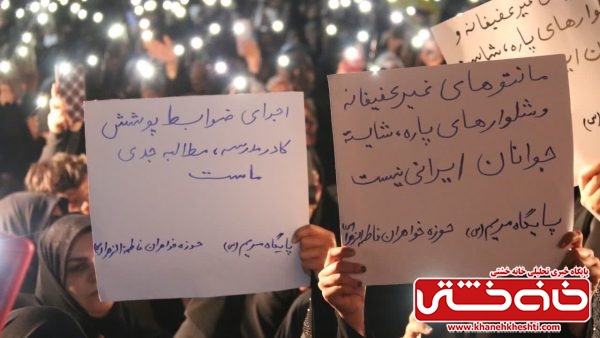 اجرای ضوابط پوشش
کادر مدرسه، مطالبه جدی
ماست
پایگاه مریم (س) حوزه خواهران فاطمة الزهرا (س)
مانتوهای غیر عفیفانه
و شلوارهای پاره، شایسته
جوانان ایرانی نیست
پایگاه مریم (س) حوزه خواهران فاطمة الزهرا (س)
غیر عفیفانه و
شلوارهای پاره، شایسته
پایگاه خبری تحلیلی خانه خشتی
خانه خشتی
www.khanehkheshti.com